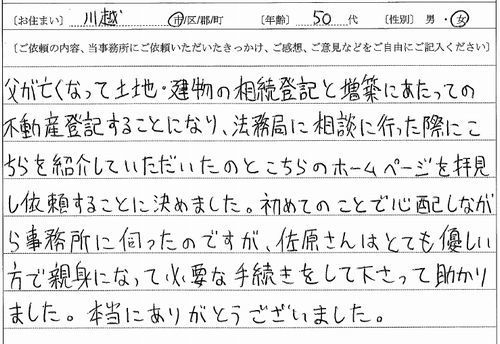 ［お住まい］ 川越 市/区/郡/町 ［年齢］ 50 代 ［性別］ 男・女
［ご依頼の内容、当事務所にご依頼いただいたきっかけ、ご感想、ご意見などをご自由にご記入ください］
父が亡くなって土地・建物の相続登記と増築にあたっての
不動産登記することになり、法務局に相談に行った際にこ
ちらを紹介していただいたのとこちらのホームページを拝見
し依頼することに決めました。初めてのことで心配しなが
ら事務所に伺ったのですが、佐原さんはとても優しい
方で親身になって必要な手続きをして下さって助かり
ました。本当にありがとうございました。